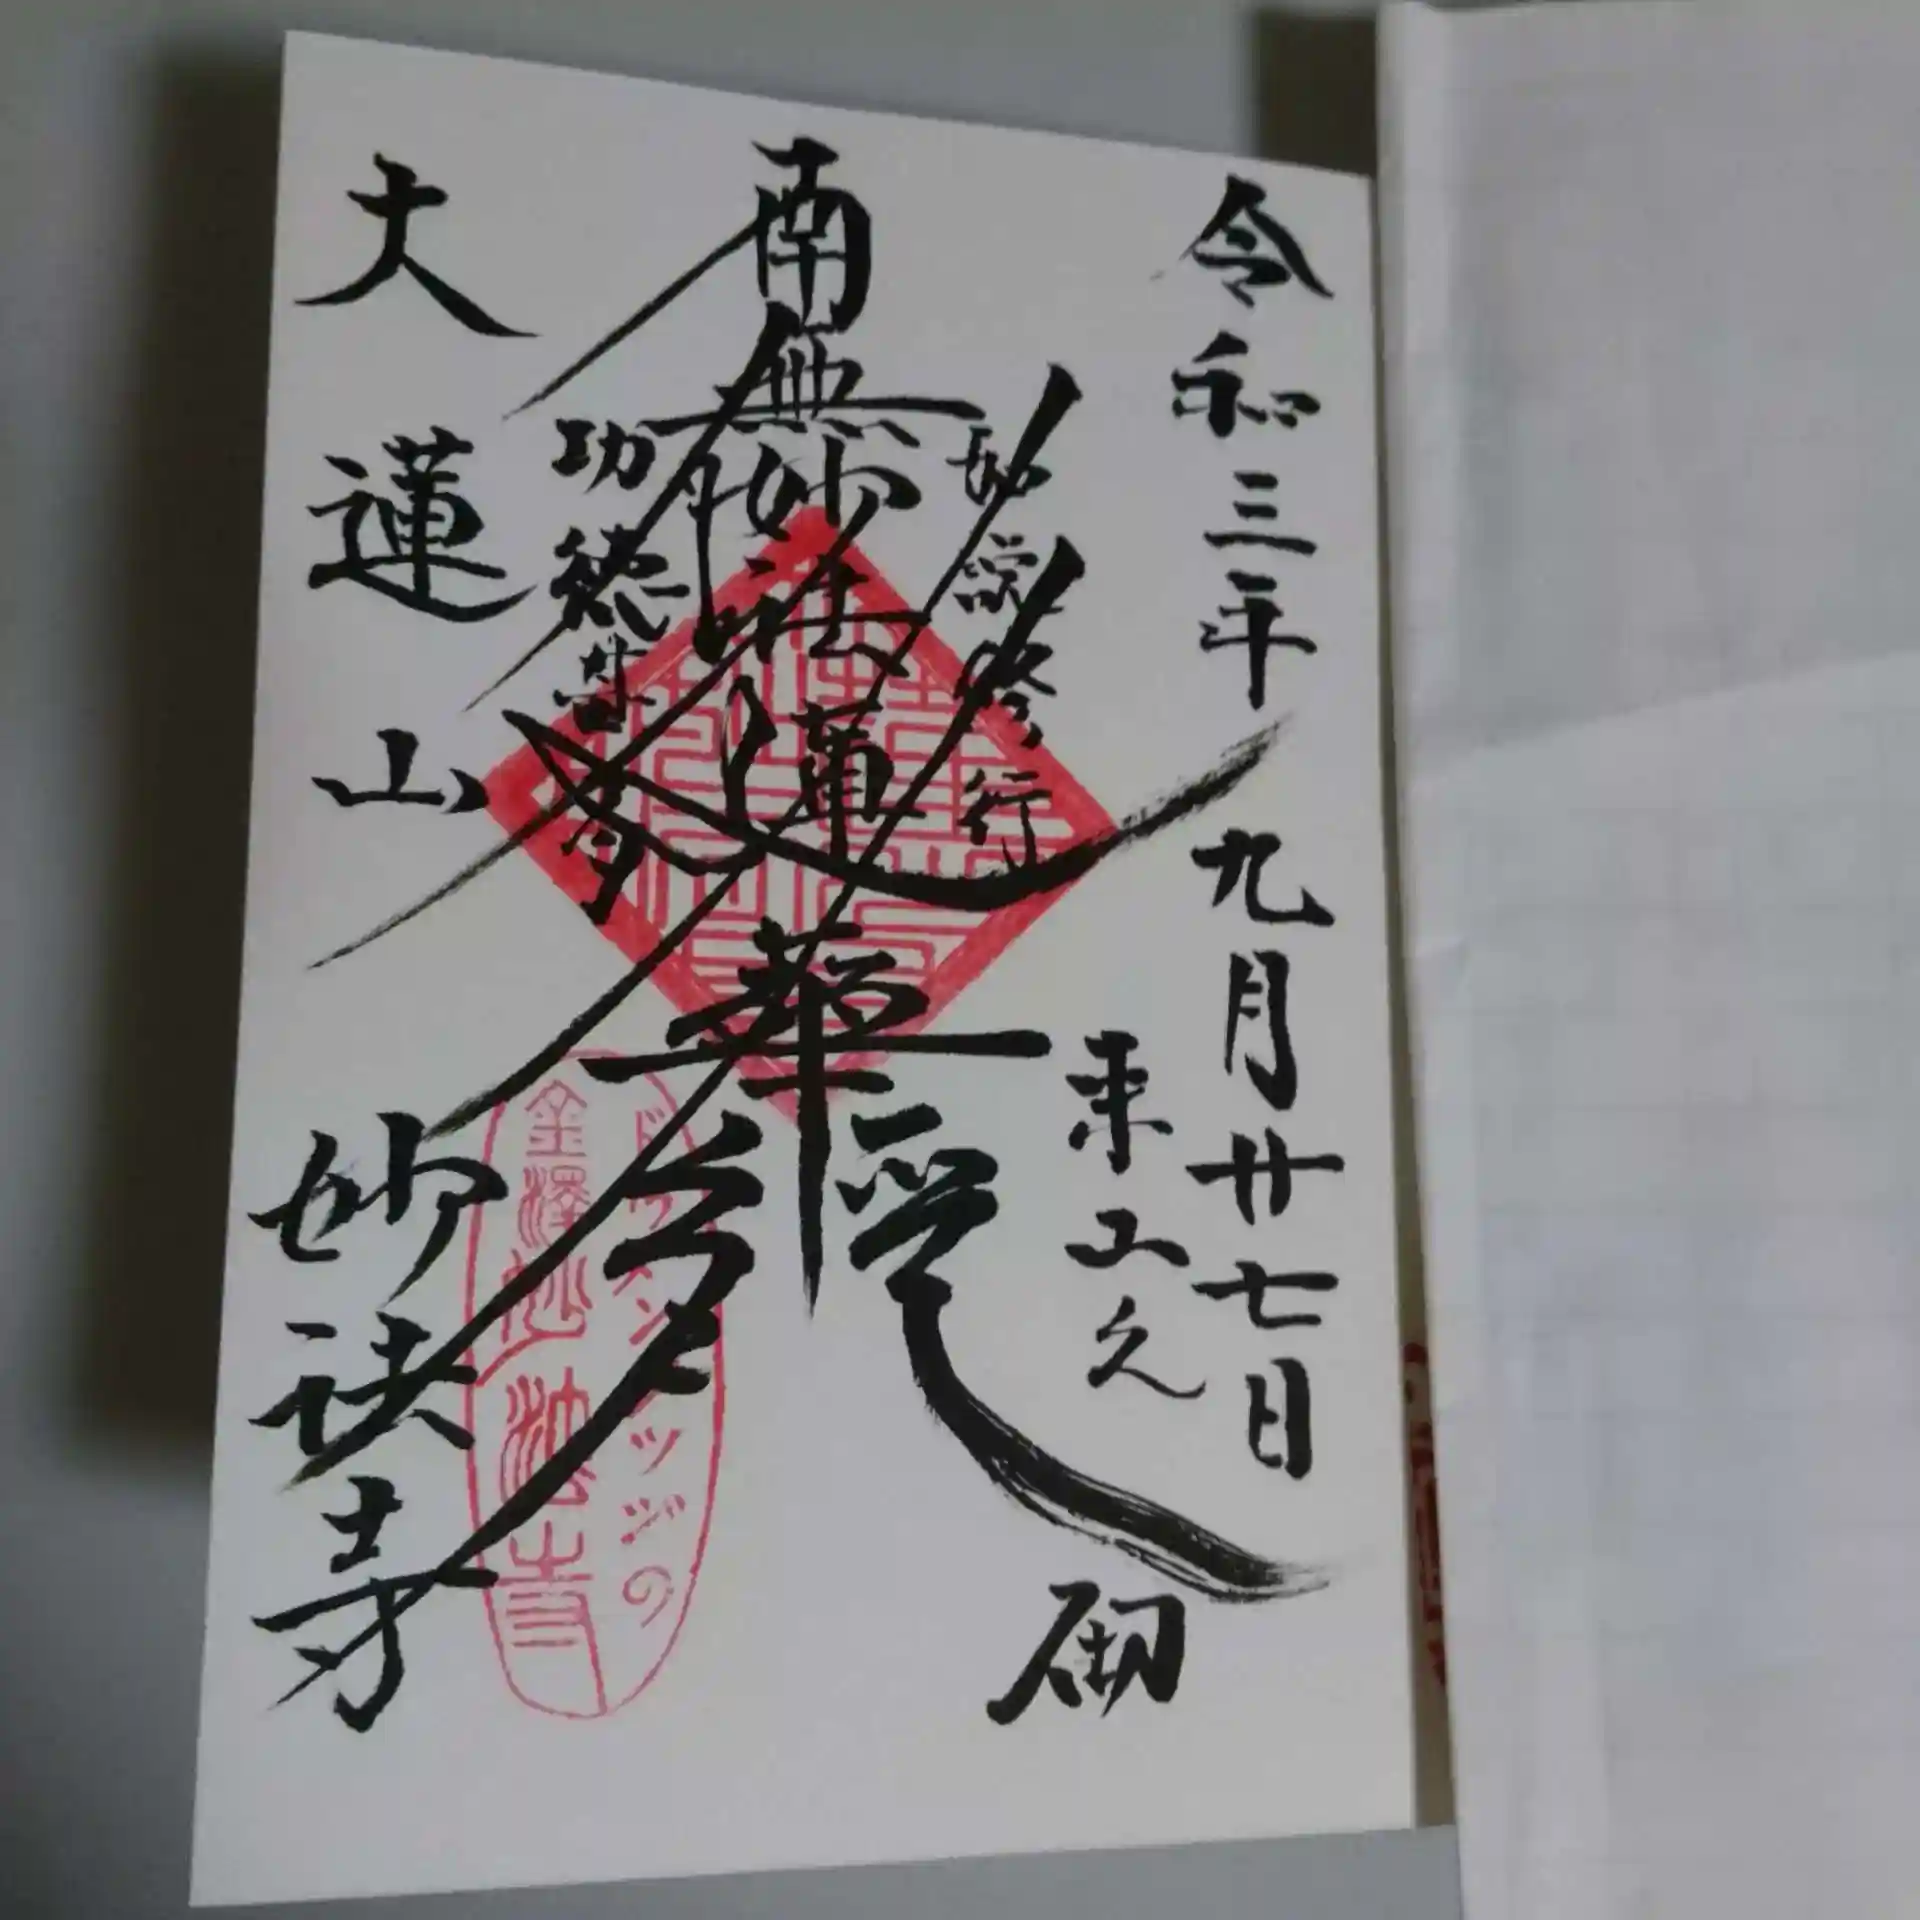 令和三年九月廿七日
来山之
砌
妙宗修行
南無妙法蓮華経
功徳
大蓮山
妙法寺
ドラゴンツツジの
金澤妙法寺